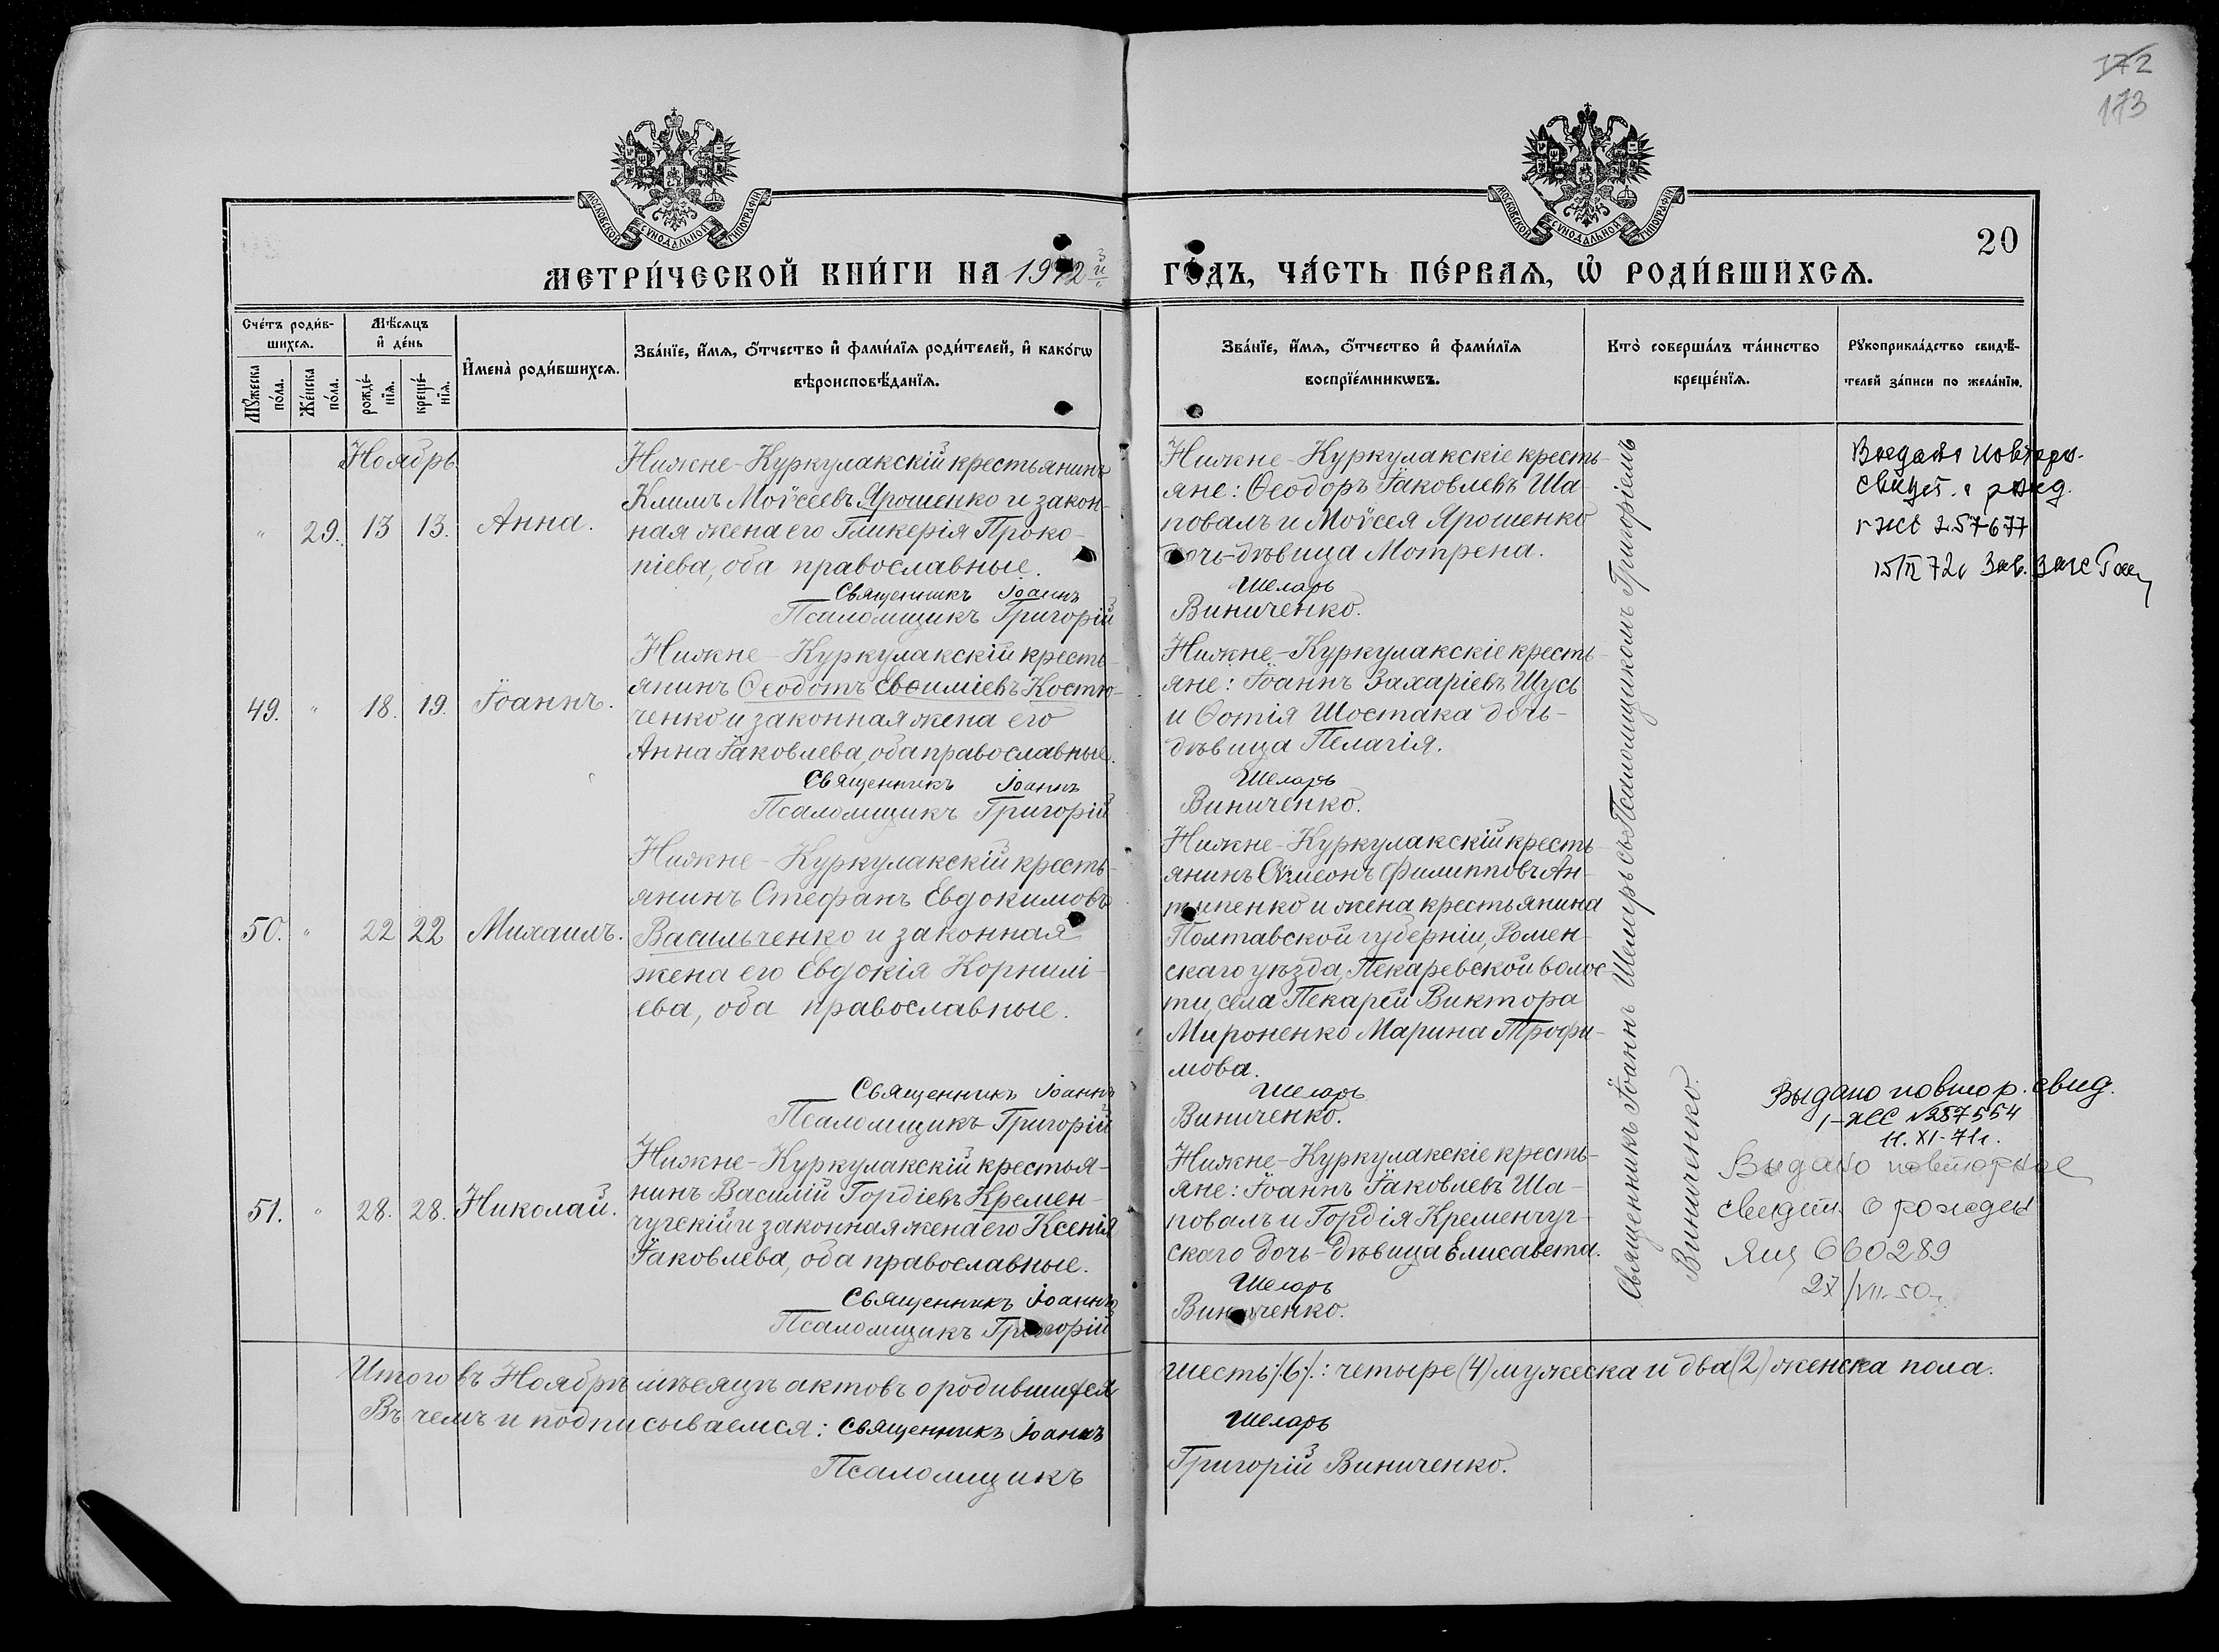 172
173
МОСКОВСКОЙ СѴНОДАЛЬНОЙ ТИПОГРАФІИ
МОСКОВСКОЙ СѴНОДАЛЬНОЙ ТИПОГРАФІИ
20
МЕТРИ́ЧЕСКОЙ КНИ́ГИ НА 1912й ГО́ДЪ, ЧА́СТЬ ПЕ́РВАѦ, Ѡ РОДИ́ВШИХСѦ.
Сче́тъ роди́в-
шихсѧ.
Мѣ́сѧцъ
и҆ де́нь
Мꙋжеска
по́ла.
Же́нска
по́ла.
рожде́-
нїѧ.
креще́-
нїѧ.
И҆мена̀ роди́вшихсѧ.
Зва́нїе, и҆́мѧ, ѻ҆́тчество и҆ фами́лїѧ роди́телей, и҆ како́гѡ
вѣроисповѣ́данїѧ.
Зва́нїе, и҆́мѧ, ѻ҆́тчество и҆ фами́лїѧ
воспрїе́мникѡвъ.
Кто̀ соверша́лъ та́инство
креще́нїѧ.
Рꙋкоприкла́дство свидѣ́-
телей за́писи по жела́нїю.
Ноябрь
" 29. 13 13. Анна.
Нижне-Куркулакскій крестьянинъ
Климъ Моѵсеевъ Ярошенко и закон-
ная жена его Гликерія Проко-
піева, оба православные.
Священникъ Іоаннъ
Псаломщикъ Григорій
Нижне-Куркулакскіе кресть-
яне: Ѳеодоръ Іаковлевъ Ша-
повалъ и Моѵсея Ярошенко
дочь-дѣвица Мотрена.
Шеларь
Виниченко.
Выдано повторн.
свидет. о рожд.
257677
15/II 72г Зав. загс
49. " 18. 19. Іоаннъ.
Нижне-Куркулакскій кресть-
янинъ Ѳеодотъ Евѳиміевъ Костю-
ченко и законная жена его
Анна Іаковлева, оба православные.
Священникъ Іоаннъ
Псаломщикъ Григорій
Нижне-Куркулакскіе кресть-
яне: Іоаннъ Захаріевъ Щусь
и Фотія Шостака дочь-
дѣвица Пелагія.
Шеларь
Виниченко.
50. " 22 22 Михаилъ.
Нижне-Куркулакскій кресть-
янинъ Стефанъ Евдокимовъ
Васильченко и законная
жена его Евдокія Корнилі-
ева, оба православные.
Священникъ Іоаннъ
Псаломщикъ Григорій
Нижне-Куркулакскій кресть-
янинъ Сѵмеонъ Филипповъ Ан-
типенко и жена крестьянина
Полтавской губерніи, Ромен-
скаго уѣзда, Пекаревской волос-
ти, села Пекарей Виктора
Мироненко Марина Трофи-
мова.
Шеларь
Виниченко.
Выдано повтор. свид.
№257554
11.XI-71г.
51. " 28. 28. Николай.
Нижне-Куркулакскій крестья-
нинъ Василій Гордіевъ Кремен-
чугскій и законная жена его Ксенія
Іаковлева, оба православные.
Священникъ Іоаннъ
Псаломщикъ Григорій
Нижне-Куркулакскіе кресть-
яне: Іоаннъ Іаковлевъ Ша-
повалъ и Гордія Кременчуг-
скаго дочь-дѣвица Елисавета.
Шеларь
Виниченко.
Выдано повторное
свидет. о рожден
660289
27/VII-50
Священникъ Іоаннъ Шеларь съ Псаломщикомъ Григоріемъ
Виниченко.
Итого въ Ноябрѣ мѣсяцѣ актовъ о родившихся шесть /6/: четыре (4) мужеска и два (2) женска пола.
Въ чемъ и подписываемся: Священникъ Іоаннъ Шеларь
Псаломщикъ Григорій Виниченко.